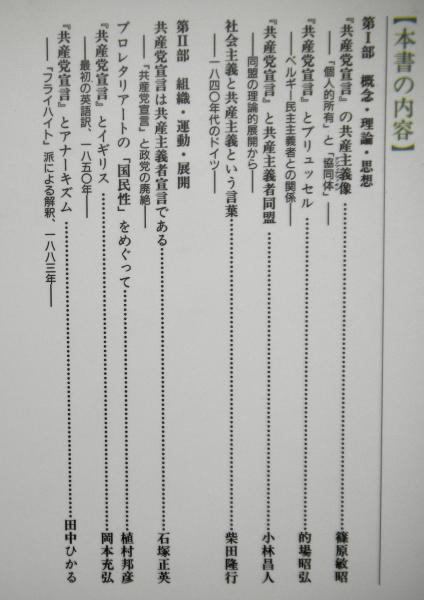 【本書の内容】
第Ⅰ部 概念・理論・思想
『共産党宣言』の共産主義像……篠原敏昭
――「個人的所有」と「協同体」――
『共産党宣言』とブリュッセル……的場昭弘
――ベルギー民主主義者との関係――
『共産党宣言』と共産主義者同盟……小林昌人
――同盟の理論的展開から――
社会主義と共産主義という言葉……柴田隆行
――一八四〇年代のドイツ――
第Ⅱ部 組織・運動・展開
共産党宣言は共産主義者宣言である……石塚正英
――「共産党宣言」と政党の廃絶――
プロレタリアートの「国民性」をめぐって……植村邦彦
『共産党宣言』とイギリス……岡本充弘
――最初の英語訳、一八五〇年――
『共産党宣言』とアナーキズム……田中ひかる
――「フライハイト」派による解釈、一八八三年――